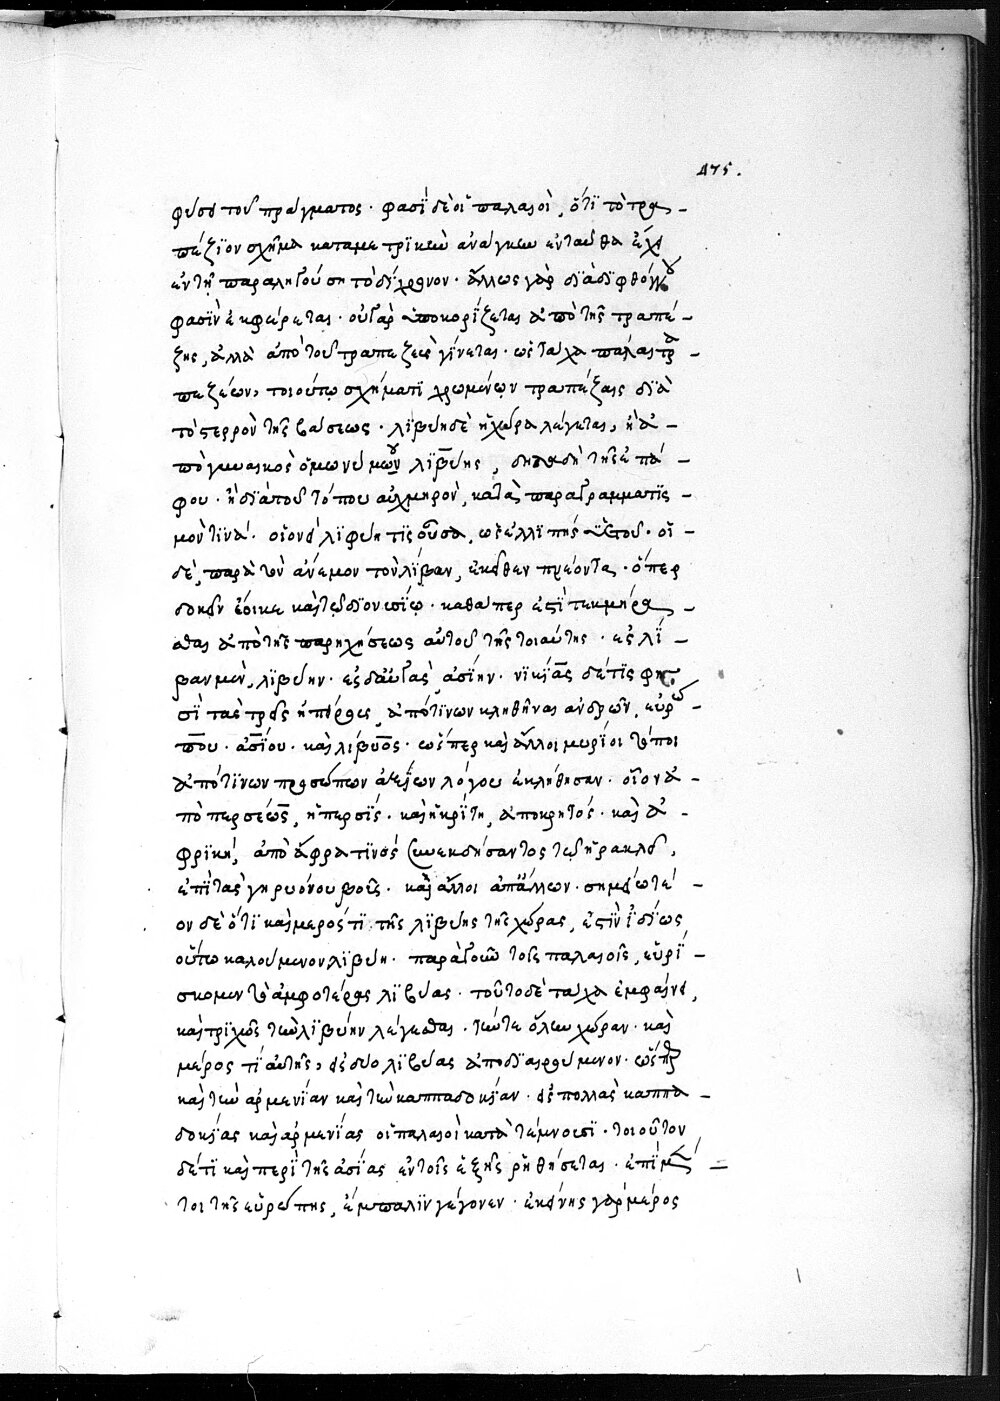 475.
φύσει τοῦ πράγματος· φασὶ δὲ οἱ παλαιοὶ, ὅτι τὸ τρα-
πέζιον σχῆμα καταμετρικὴν ἀνάγκην ἐνταῦθα ἔχει
ἐν τῇ παραληγούσῃ τὸ δίχρονον· ἄλλως γὰρ διὰ διφθόγγου
φασὶν ἐκφέρεται· οὐ γὰρ ὑποκορίζεται ἀπὸ τῆς τραπέ-
ζης, ἀλλὰ ἀπὸ τοῦ τραπεζεὺς γίνεται· ὡς τάχα πάλαι τρα-
πεζέων, τοιούτῳ σχήματι χρωμένων τραπέζαις διὰ
τὸ στερρὸν τῆς βάσεως· λιβύη δὲ ἡ χώρα λέγεται, ἢ ἀ-
πὸ γυναικὸς ὁμωνύμου λιβύης, δηλαδὴ τῆς ἐπά-
φου· ἢ διὰ τὸ τοῦ τόπου αὐχμηρὸν, κατὰ παραγραμματισ-
μὸν τινά· οἱονεὶ λιφύη τὶς οὖσα, ὡς ἐλλιπὴς ὑετοῦ· οἱ
δὲ, παρὰ τὸν ἄνεμον τὸν λίβαν, ἐκεῖθεν πνέοντα· ὅπερ
δοκεῖν ἔοικε καὶ τῷ διονυσίῳ· καθάπερ ἐστὶ τεκμήρα-
σθαι ἀπὸ τῆς παρηχήσεως αὐτοῦ τῆς τοιαύτης· ἐς λί-
βαν μὲν, λιβύην· ἐς δ' αὐγὰς ἀσίην· νικίας δέ τις φη-
σὶ τὰς τρεῖς ἠπείρους, ἀπό τινων κληθῆναι ἀνδρῶν, εὐρώ-
που· ἀσίου· καὶ λίβυος· ὥσπερ καὶ ἄλλοι μυρίοι τόποι
ἀπό τινων προσώπων ἀξίων λόγου ἐκλήθησαν· οἷον ἀ-
πὸ περσέως, ἡ περσίς· καὶ ἡ κρήτη, ἀπὸ κρητός· καὶ ἀ-
φρικὴ, ἀπὸ ἄφρα τινὸς συνεκδημήσαντος τῷ ἡρακλεῖ,
ἐπὶ τὰς γηρυόνου βοῦς· καὶ ἄλλοι ἀπ' ἄλλων· σημειωτέ-
ον δὲ ὅτι καὶ μέρος τι τῆς λιβύης τῆς χώρας, ἐστὶν ἰδίως
οὕτω καλούμενον λιβύη· παρὰ γοῦν τοῖς παλαιοῖς, εὑρί-
σκομεν τὸ ἀμφοτέρας λιβύας· τοῦτο δὲ τάχα ἐμφαίνει,
καὶ τὸ διχῶς τὴν λιβύην λέγεσθαι· τήν τε ὅλην χώραν· καὶ
μέρος τι αὐτῆς, εἰς δύο λιβύας ἀποδιαιρούμενον· ὥσπερ
καὶ τὴν ἀρμενίαν καὶ τὴν καππαδοκίαν· εἰς πολλὰς καππα-
δοκίας καὶ ἀρμενίας οἱ παλαιοὶ κατατέμνουσι· τοιοῦτον
δέ τι καὶ περὶ τῆς ἀσίας ἐν τοῖς ἑξῆς ῥηθήσεται· ἐπὶ μέν-
τοι τῆς εὐρώπης, ἔμπαλιν γέγονεν· ἐκείνης γὰρ μέρος